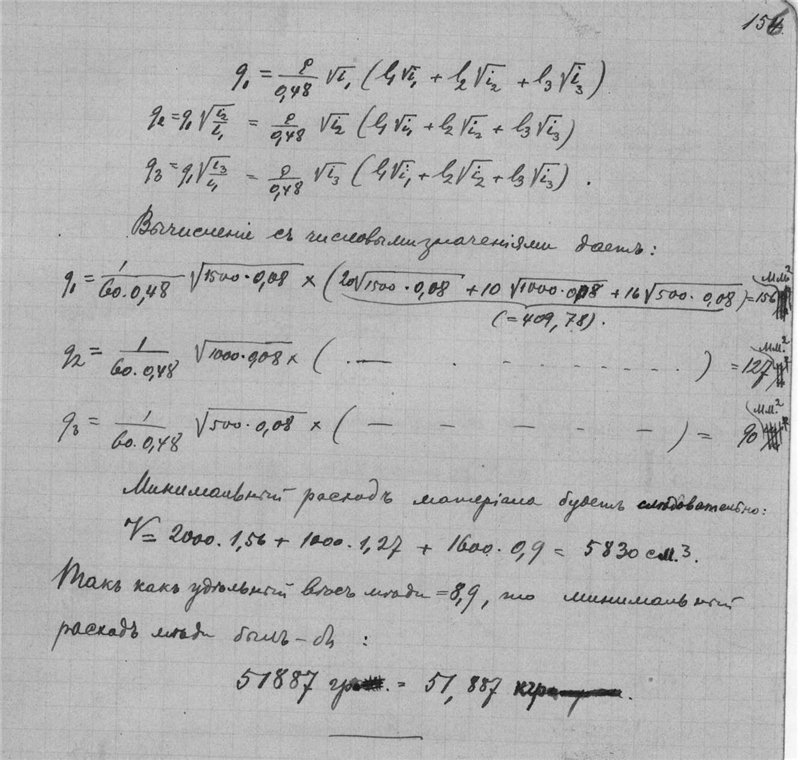 154
q₁ = ρ/0,48 √i₁ (l₁√i₁ + l₂√i₂ + l₃√i₃)
q₂ = q₁√i₂/i₁ = ρ/0,48 √i₂ (l₁√i₁ + l₂√i₂ + l₃√i₃)
q₃ = q₁√i₃/i₁ = ρ/0,48 √i₃ (l₁√i₁ + l₂√i₂ + l₃√i₃).
Вычисленіе съ числовыми значеніями даетъ:
q₁ = 1/60.0,48 √1500.0,08 × (20√1500.0,08 + 10√1000.0,08 + 16√500.0,08) = 156 мм.²
(= 409,78).
q₂ = 1/60.0,48 √1000.0,08 × ( . — . - - - - - - ) = 127 мм.²
q₃ = 1/60.0,48 √500.0,08 × ( — — — — — ) = 90 мм.²
Минимальный расходъ матеріала будетъ слѣдовательно:
V = 2000.1,56 + 1000.1,27 + 1600.0,9 = 5830 см.³.
Такъ какъ удѣльный вѣсъ мѣди = 8,9, то минимальный
расходъ мѣди былъ-бы:
51887 гр. = 51,887 кгр.